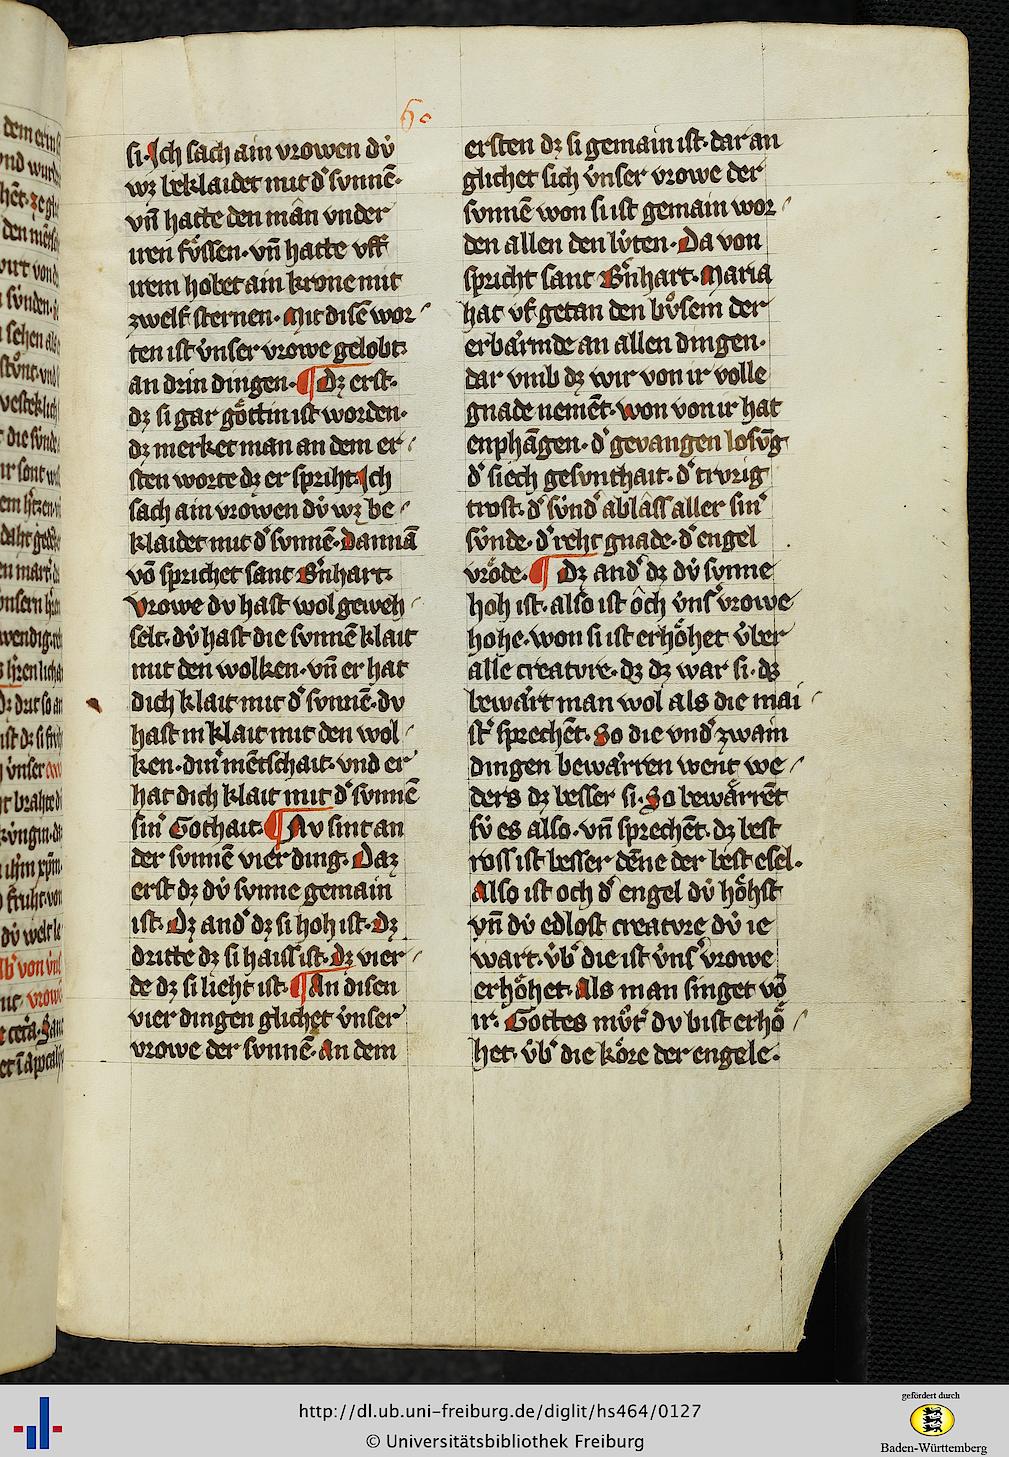 60
si. Ich sach ain vrowen dv̇
wꝫ beklaidet mit dˀ svnnē.
vn̄ hatte den mân vnder
iren fv̊ssen. vn̄ hatte vff
irem hobet ain krone mit
zwelf sternen. Mit disē wor
ten ist v̇nser vrowe gelobt
an drin dingen. ¶ Dꝫ erst.
dꝫ si gar gȯttin ist worden.
dꝫ merket man an dem er
sten worte dꝫ er spriht. Ich
sach ain vrowen dv̇ wꝫ be
klaidet mit dˀ svnnē. Dannā
vō sprichet sant Bn̄hart.
Vrowe dv hast wol geweh
selt. dv̇ hast die svnnē klait
mit den wolken. vn̄ er hat
dich klait mit dˀ svnnē. dv
hast in klait mit den wol
ken. dinˀ mētschait. vnd er
hat dich klait mit dˀ svnnē
sinˀ Gothait. ¶ Nv sint an
der svnnē vier ding. Daꝫ
erst dꝫ dv̇ svnne gemain
ist. Dꝫ andˀ dꝫ si hoh ist. Dꝫ
dritte dꝫ si haiss ist. dꝫ vier
de dꝫ si lieht ist. ¶ An disen
vier dingen glichet v̇nser
vrowe der svnnē. An dem
ersten dꝫ si gemain ist. dar an
glichet sich v̇nser vrowe der
svnnē won si ist gemain wor
den allen den lv̇ten. Da von
spricht sant Bn̄hart. Maria
hat vf getan den bv̊sem der
erbȧrmde an allen dingen.
dar vmb dꝫ wir von ir volle
gnade nemēt. won von ir hat
enphāgen. dˀ gevangen losvn̄g
dˀ siech gesvnthait. dˀ trvrig
trost. dˀ sv̇ndˀ ablâss aller sinˀ
sv̇nde. dˀ reht gnade. dˀ engel
vrȯde. ¶ Dꝫ andˀ dꝫ dv̇ svnne
hoh ist. also ist ôch v̇nsˀ vrowe
hohe. won si ist erhȯhet v̇ber
alle creatvre. dꝫ dꝫ war si. dꝫ
bewȧrt man wol als die mai
stˀ sprechēt. So die vndˀ zwain
dingen bewȧrren went we
ders dꝫ besser si. So bewȧrrēt
sv̇ es also. vn̄ sprechēt. dꝫ best
ross ist besser dēne der best esel.
Also ist och dˀ engel dv̇ hȯhst
vn̄ dv̇ edlost creatvre dv̇ ie
wart. v̇bˀ die ist v̇nsˀ vrowe
erhȯhet. Als man singet vō
ir. Gottes mv̊tˀ dv bist erhȯ
het. v̇bˀ die kȯre der engele.
http://dl.ub.uni-freiburg.de/diglit/hs464/0127
© Universitätsbibliothek Freiburg
gefördert durch
Baden-Württemberg